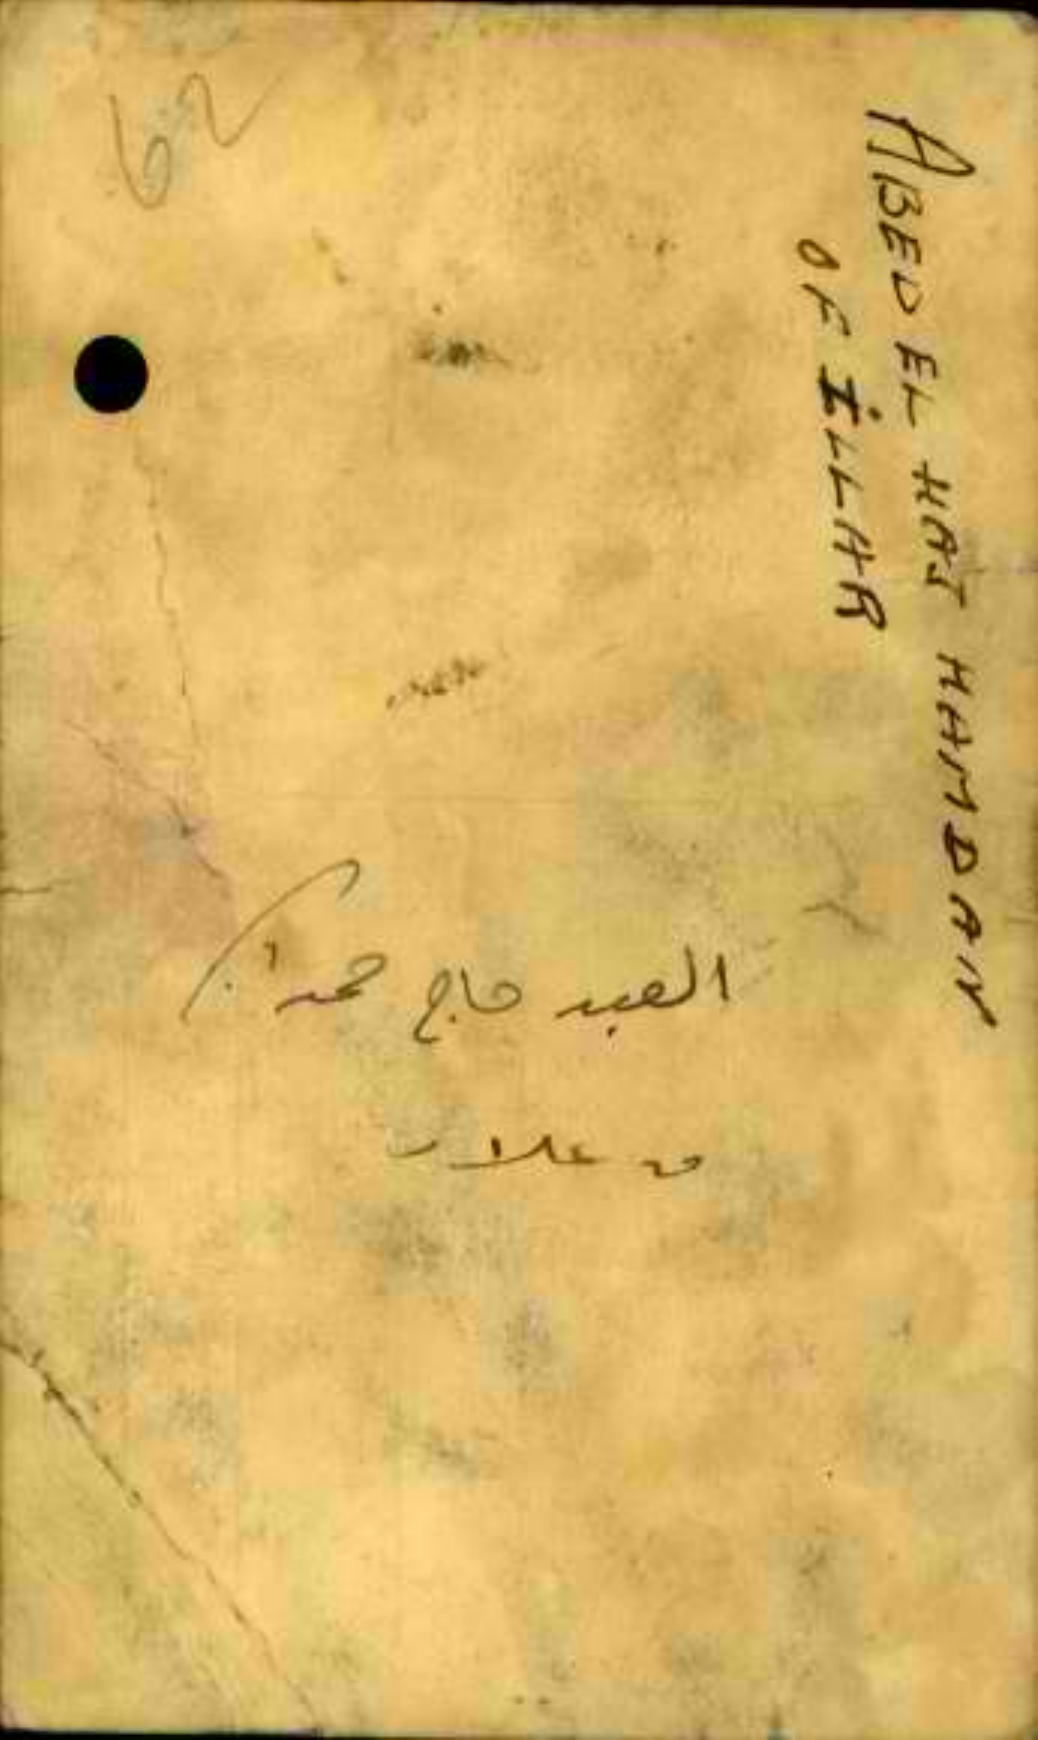 62
ABED EL HAJ HAMDAN
OF ILLAR
العبد حاج حمدان
من علار